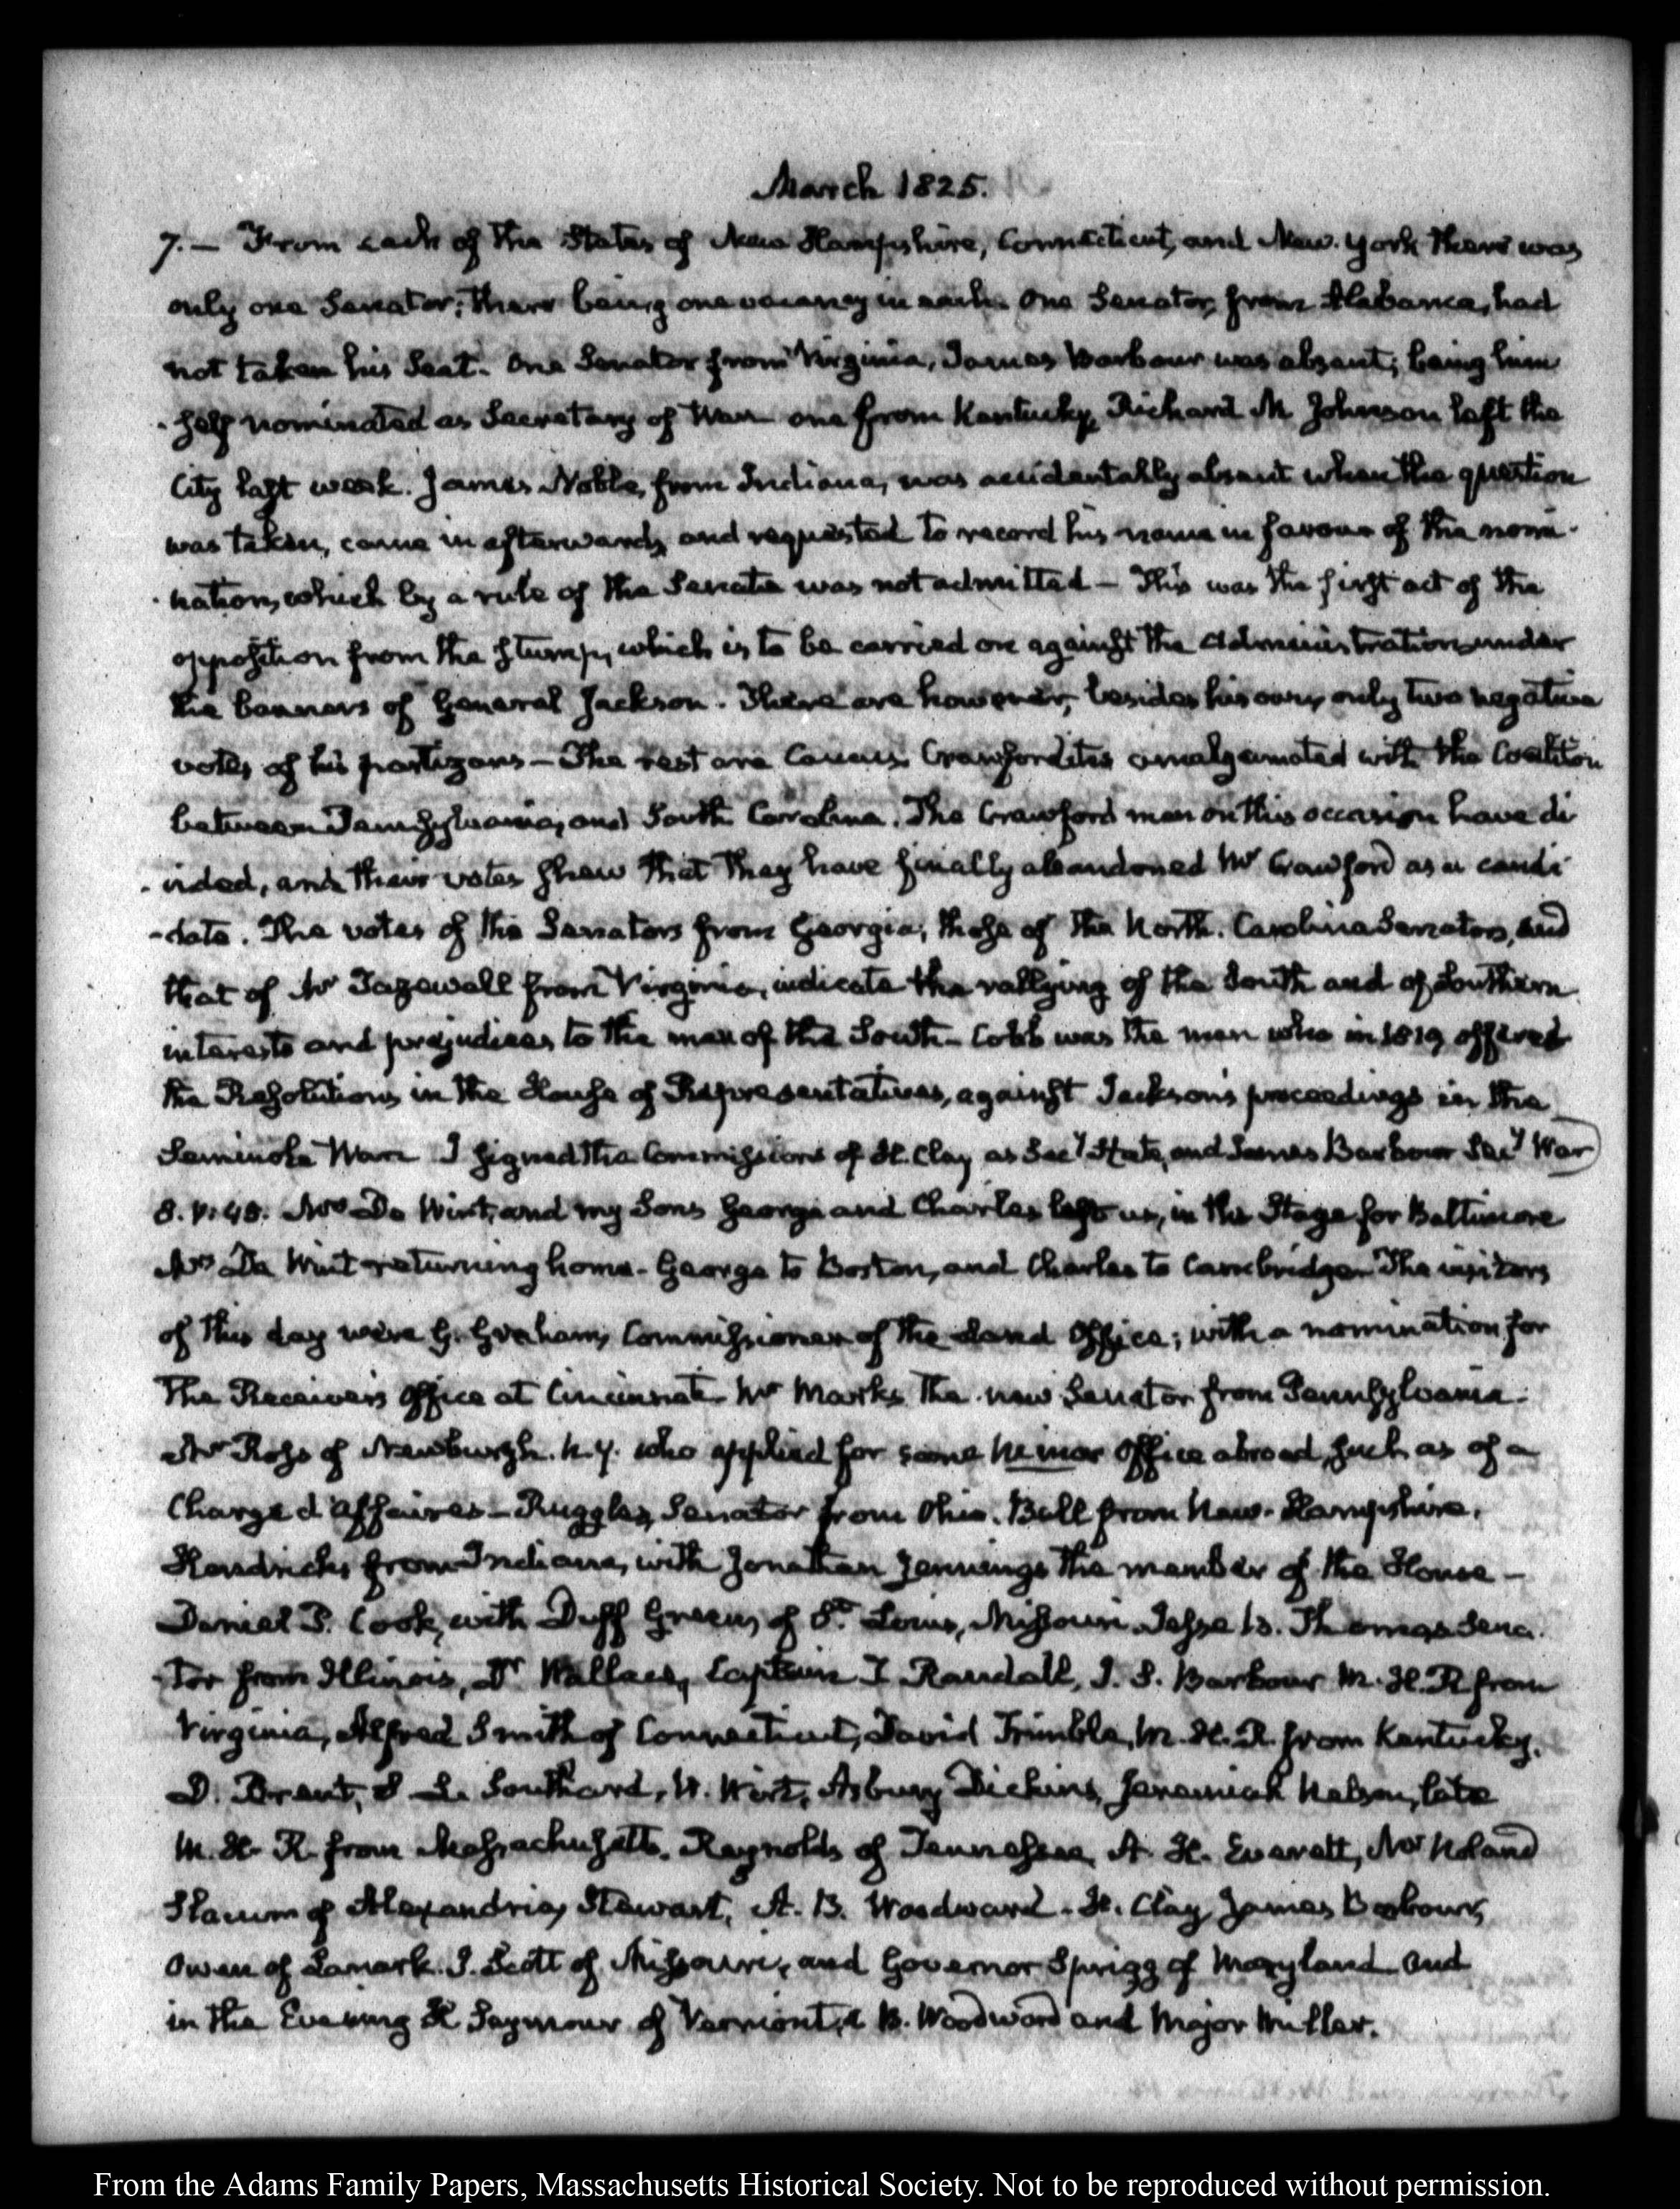 March 1825.
7.— From each of the States of New Hampshire, Connecticut, and New-York there was
only one Senator; there being one vacancy in each. One Senator, from Alabama, had
not taken his Seat. One Senator from Virginia, James Barbour was absent; being him
-self nominated as Secretary of War one from Kentucky, Richard M Johnson left the
City last week. James Noble, from Indiana, was accidentally absent when the question
was taken, came in afterwards, and requested to record his name in favour of the nomi-
-nation, which by a rule of the Senate was not admitted — This was the first act of the
opposition from the stump, which is to be carried on against the Administration under
the banners of General Jackson. There are however, besides his own, only two negative
votes of his partizans — The rest are Caucus Crawfordites amalgamated with the Coalition
between Pennsylvania, and South Carolina. The Crawford men on this occasion have di
-vided, and their votes shew that they have finally abandoned Mr Crawford as a candi
-date. The votes of the Senators from Georgia, those of the North-Carolina Senators, and
that of Mr Tazewell from Virginia, indicate the rallying of the South and of Southern
interests and prejudices to the man of the South— Cobb was the man who in 1819, offered
the Resolutions in the House of Representatives, against Jackson's proceedings in the
Seminole War. I signed the Commissions of H. Clay as Secy State, and James Barbour Secy War
8. V:45. Mrs De Wint, and my Sons George and Charles left us, in the Stage for Baltimore
Mrs De Wint returning home— George to Boston, and Charles to Cambridge. The visitors
of this day were G. Graham, Commissioner of the Land Office; with a nomination for
the Receivers Office at Cincinnati. Mr Marks the new Senator from Pennsylvania.
Mr Ross of Newburgh. N.Y. who applied for some minor Office abroad, such as of a
Chargé d'Affaires — Ruggles, Senator from Ohio. Bell from New-Hampshire.
Hendricks from Indiana, with Jonathan Jennings the member of the House —
Daniel P. Cook, with Duff Green, of St. Louis, Missouri. Jesse B. Thomas Sena-
-tor from Illinois, Dr Wallace, Captain T Randall, J. S. Barbour M.H.R from
Virginia, Alfred Smith of Connecticut, David Trimble, M.H.R. from Kentucky.
D. Brent, S L. Southard, W. Wirt, Asbury Dickins, Jeremiah Nelson, late
M.H.R. from Massachusetts. Reynolds of Tennessee, A. H. Everett, Mr Noland
Slacum of Alexandria, Stewart, A. B. Woodward. H. Clay, James Barbour,
Owen of Lanark. J. Scott of Missouri, and Governor Sprigg of Maryland and
in the Evening H Seymour of Vermont, A B. Woodward and Major Miller.
From the Adams Family Papers, Massachusetts Historical Society. Not to be reproduced without permission.